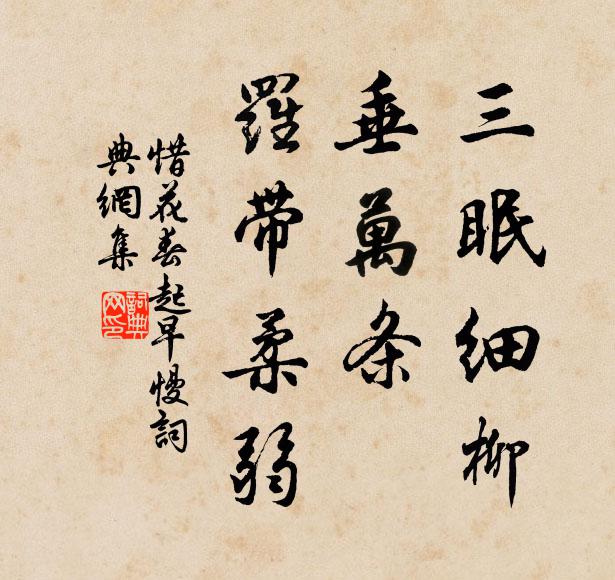 三眠細柳
垂萬条
羅帶柔弱
惜花春起早慢詞
典網集
詞典网印